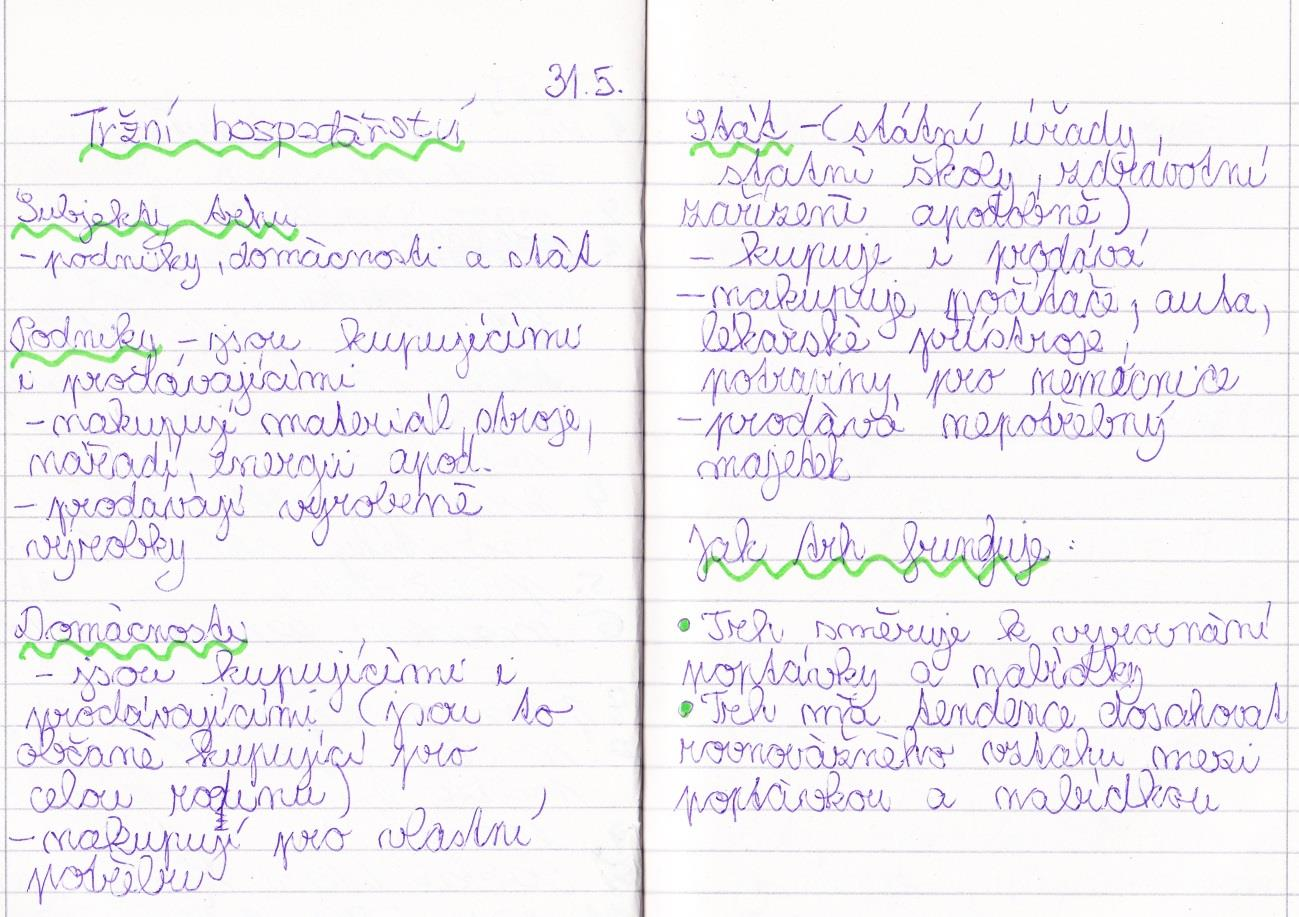 31.5.
Tržní hospodářství
Subjekty trhu
- podniky, domácnosti a stát
Podniky - jsou kupujícími
i prodávajícími
- nakupují materiál, stroje,
nářadí, energii apod.
- prodávají vyrobené
výrobky
Domácnosti
- jsou kupujícími i
prodávajícími (jsou to
občané kupující pro
celou rodinu)
- nakupují pro vlastní
potřebu
Stát - (státní úřady,
statní školy, zdravotní
zařízení apodobně)
- kupuje i prodává
- nakupuje počítače, auta,
lékařské přístroje,
potraviny pro nemocnice
- prodává nepotřebný
majetek
Jak trh funguje:
• Trh směruje k vyrovnání
poptávky a nabídky
• Trh má tendence dosahovat
rovnovážného vztahu mezi
poptávkou a nabídkou